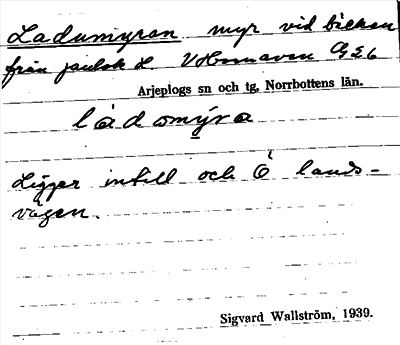 Ladumyran myr vid bäcken
från V Hornavan G5E6
Arjeplogs sn och tg, Norrbottens län.
lȧdomy̆ra
Ligger intill och Ö lands-
vägen.
Sigvard Wallström, 1939.